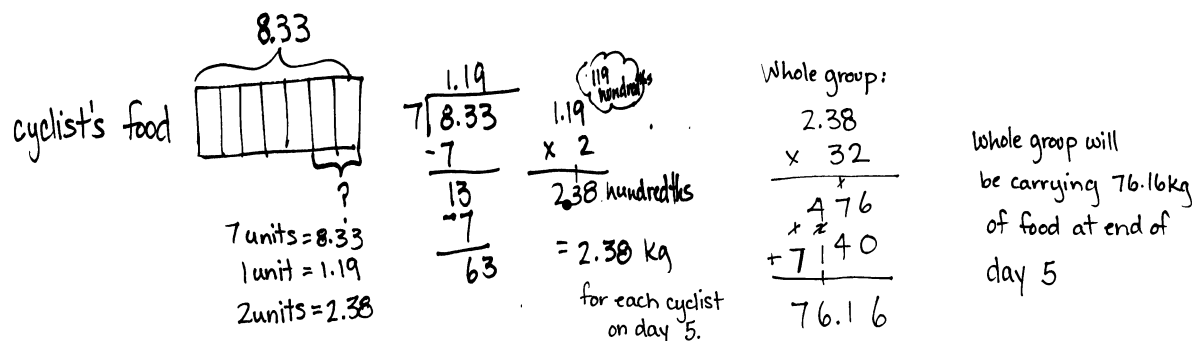 8.33
cyclist's food
?
7 units = 8.33
1 unit = 1.19
2 units = 2.38
1.19
7 8.33
-7
13
-7
63
119 hundredths
1.19
x 2
2.38 hundredths
= 2.38 kg
for each cyclist
on day 5.
Whole group:
2.38
x 32
476
+7140
76.16
Whole group will
be carrying 76.16kg
of food at end of
day 5